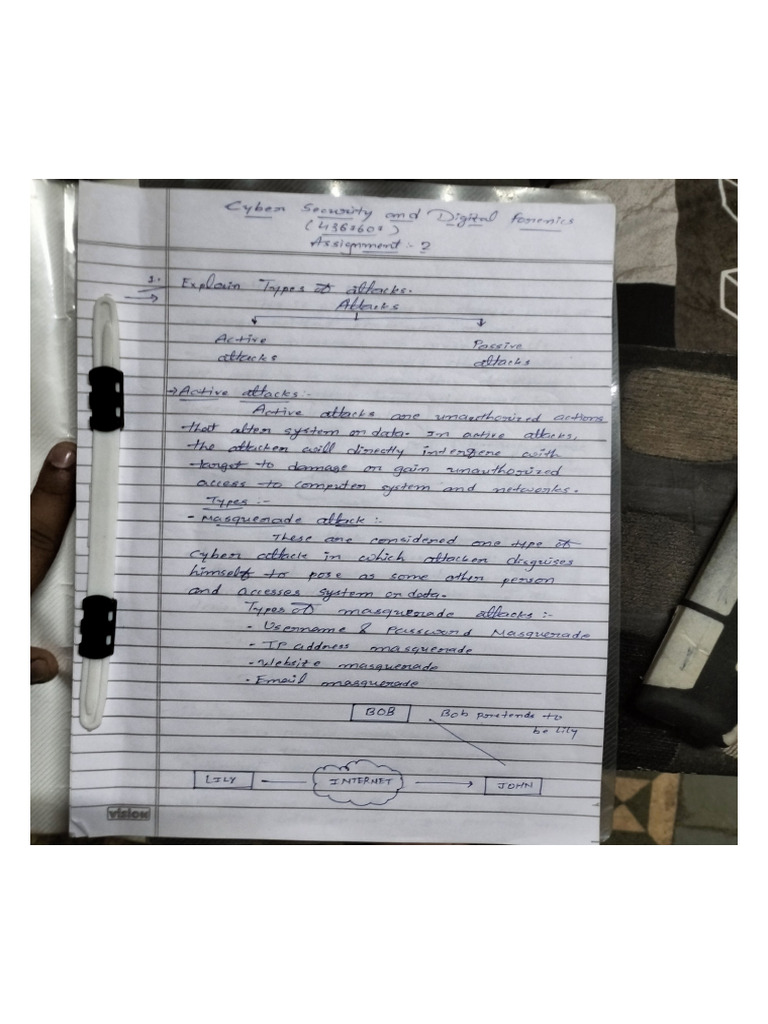 Cyber Security and Digital Forenics
Assignment :- 2
1. Explain Types of attacks.
Attacks
Active attacks
Passive attacks
→ Active attacks :-
Active attacks are unauthorized actions
that alter system or data. In active attacks,
the attacker will directly interfere with
target to damage or gain unauthorized
access to computer system and networks.
Types :-
- Masquerade attack :-
These are considered one type of
cyber attack in which attacker disguises
himself to pose as some other person
and accesses system or data.
Types of masquerade attacks :-
- Username & Password Masquerade
- IP address masquerade
- Website masquerade
- Email masquerade
BOB
Bob pretends to
be Lily
LILY INTERNET JOHN
vision